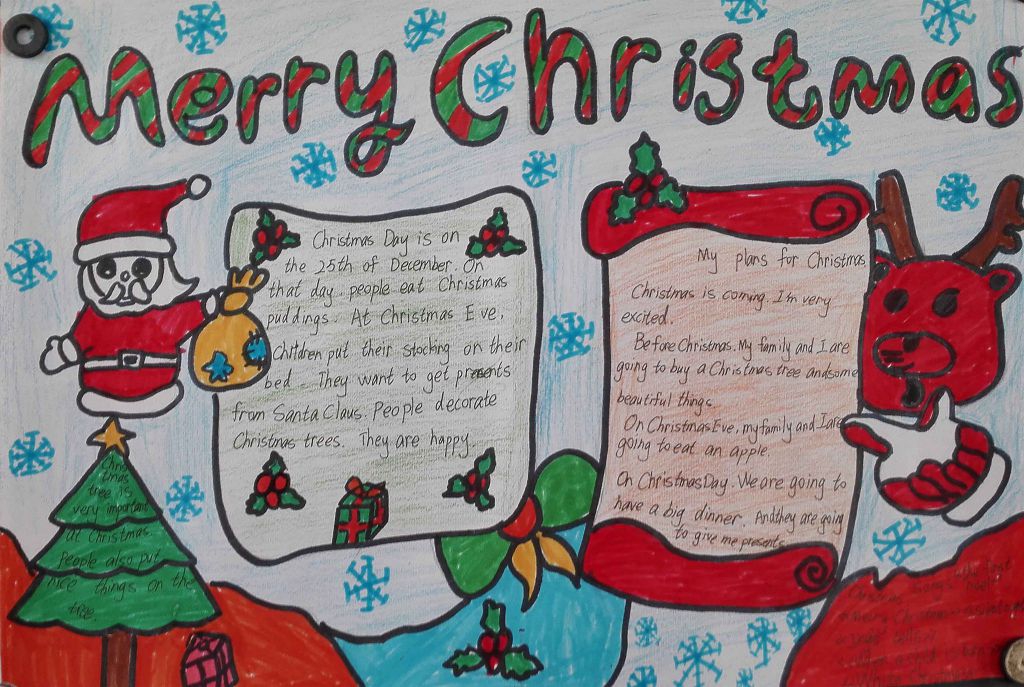 Merry Christmas
Christmas Day is on
the 25th of December. On
that day. people eat Christmas
puddings. At Christmas Eve,
Children put their stocking on their
bed. They want to get presents
from Santa Claus. People decorate
Christmas trees. They are happy.
My plans for Christmas
Christmas is coming. I'm very
excited.
Before Christmas. My family and I are
going to buy a Christmas tree and some
beautiful things.
On Christmas Eve, my family and I are
going to eat an apple.
On Christmas Day. We are going to
have a big dinner. And they are going
to give me presents.
Chris
tmas
tree is
very important
at Christmas.
People also put
nice things on the
tree.